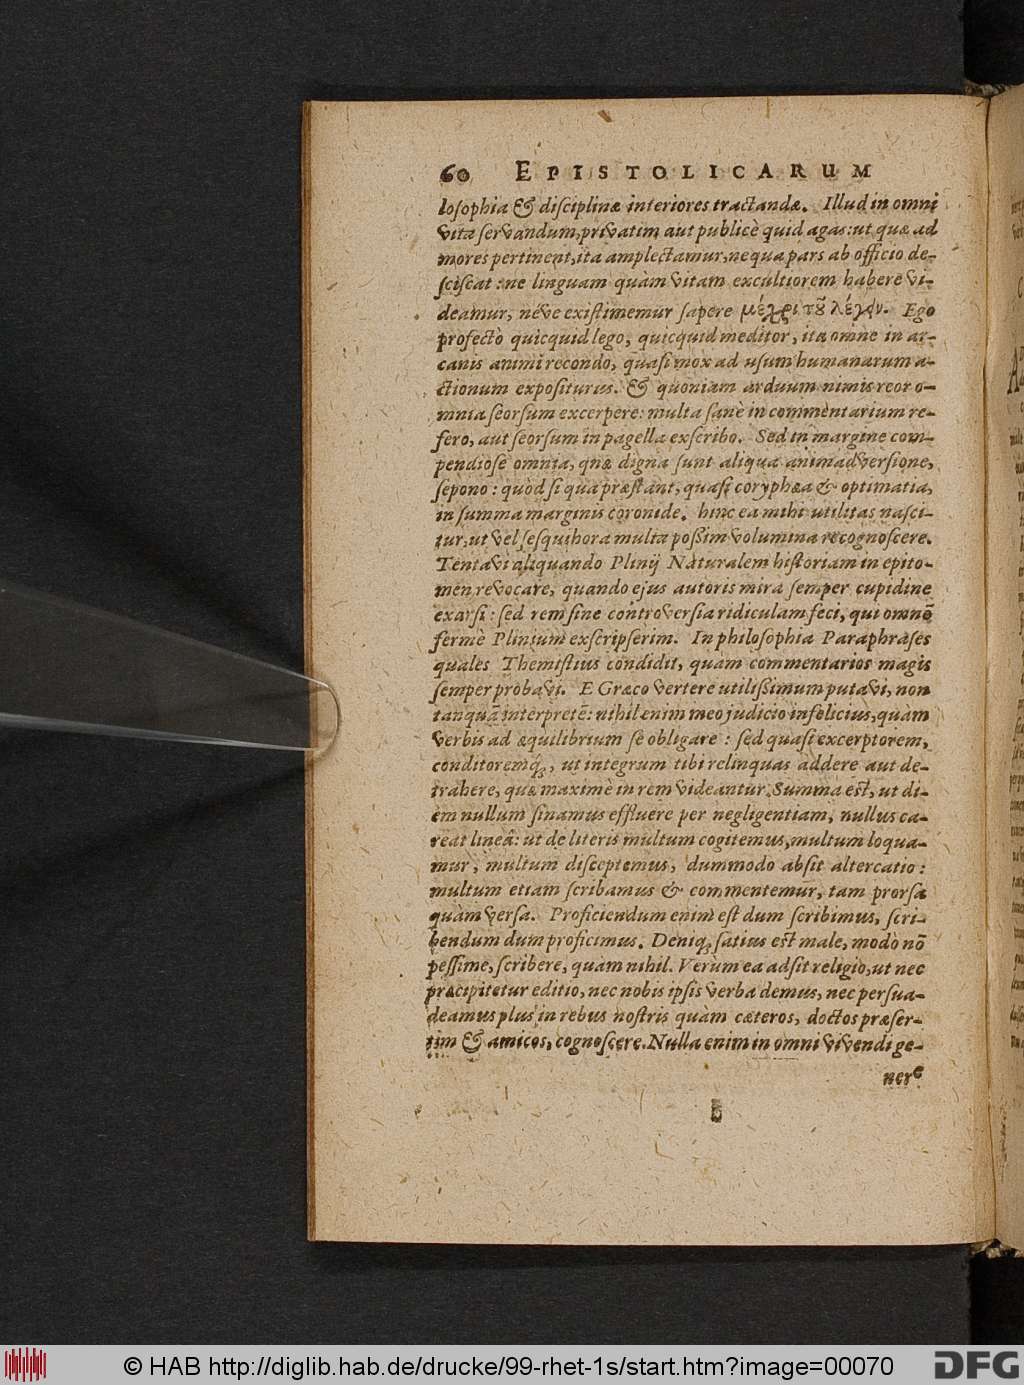 60 EPISTOLICARUM
losophia & disciplinæ interiores tractandæ. Illud in omni
vita servandum, privatim aut publicè quid agas: ut quæ ad
mores pertinent, ita amplectamur, ne qua pars ab officio de-
sciscat: ne linguam quàm vitam excultiorem habere vi-
deamur, néve existimemur sapere μέχρι τȣ͂ λέγειν. Ego
profectò quicquid lego, quicquid meditor, ita omne in ar-
canis animi recondo, quasi mox ad usum humanarum a-
ctionum expositurus. & quoniam arduum nimis reor o-
mnia seorsum excerpere: multa sanè in commentarium re-
fero, aut seorsum in pagella exscribo. Sed in margine com-
pendiose omnia, qnæ digna sunt aliqua animadversione,
sepono: quòd si qua præstant, quasi coryphæa & optimatia,
in summa marginis coronide. hinc ea mihi utilitas nasci-
tur, ut vel sesquihora multa possim volumina recognoscere.
Tentavi aliquando Plinij Naturalem historiam in epito-
men revocare, quando ejus autoris mira semper cupidine
exarsi: sed rem sine controversia ridiculam feci, qui omnẽ
fermè Plinium exscripserim. In philosophia Paraphrases
quales Themistius condidit, quam commentarios magis
semper probavi. E Græco vertere utilissimum putavi, non
tanquã interpretẽ: nihil enim meo judicio infelicius, quàm
verbis ad æquilibrium se obligare: sed quasi excerptorem,
conditoremq́;, ut integrum tibi relinquas addere aut de-
trahere, quæ maximè in rem videantur. Summa est, ut di-
em nullum sinamus effluere per negligentiam, nullus ca-
reat lineâ: ut de literis multum cogitemus, multum loqua-
mur, multum disceptemus, dummodo absit altercatio:
multum etiam scribamus & commentemur, tam prorsa
quàm versa. Proficiendum enim est dum scribimus, scri-
bendum dum proficimus. Deniq; satius est male, modò nõ
pessime, scribere, quàm nihil. Verùm ea adsit religio, ut nec
præcipitetur editio, nec nobis ipsis verba demus, nec persua-
deamus plus in rebus nostris quàm cæteros, doctos præser-
tim & amicos, cognoscere. Nulla enim in omni vivendi ge-
nere
© HAB http://diglib.hab.de/drucke/99-rhet-1s/start.htm?image=00070
DFG